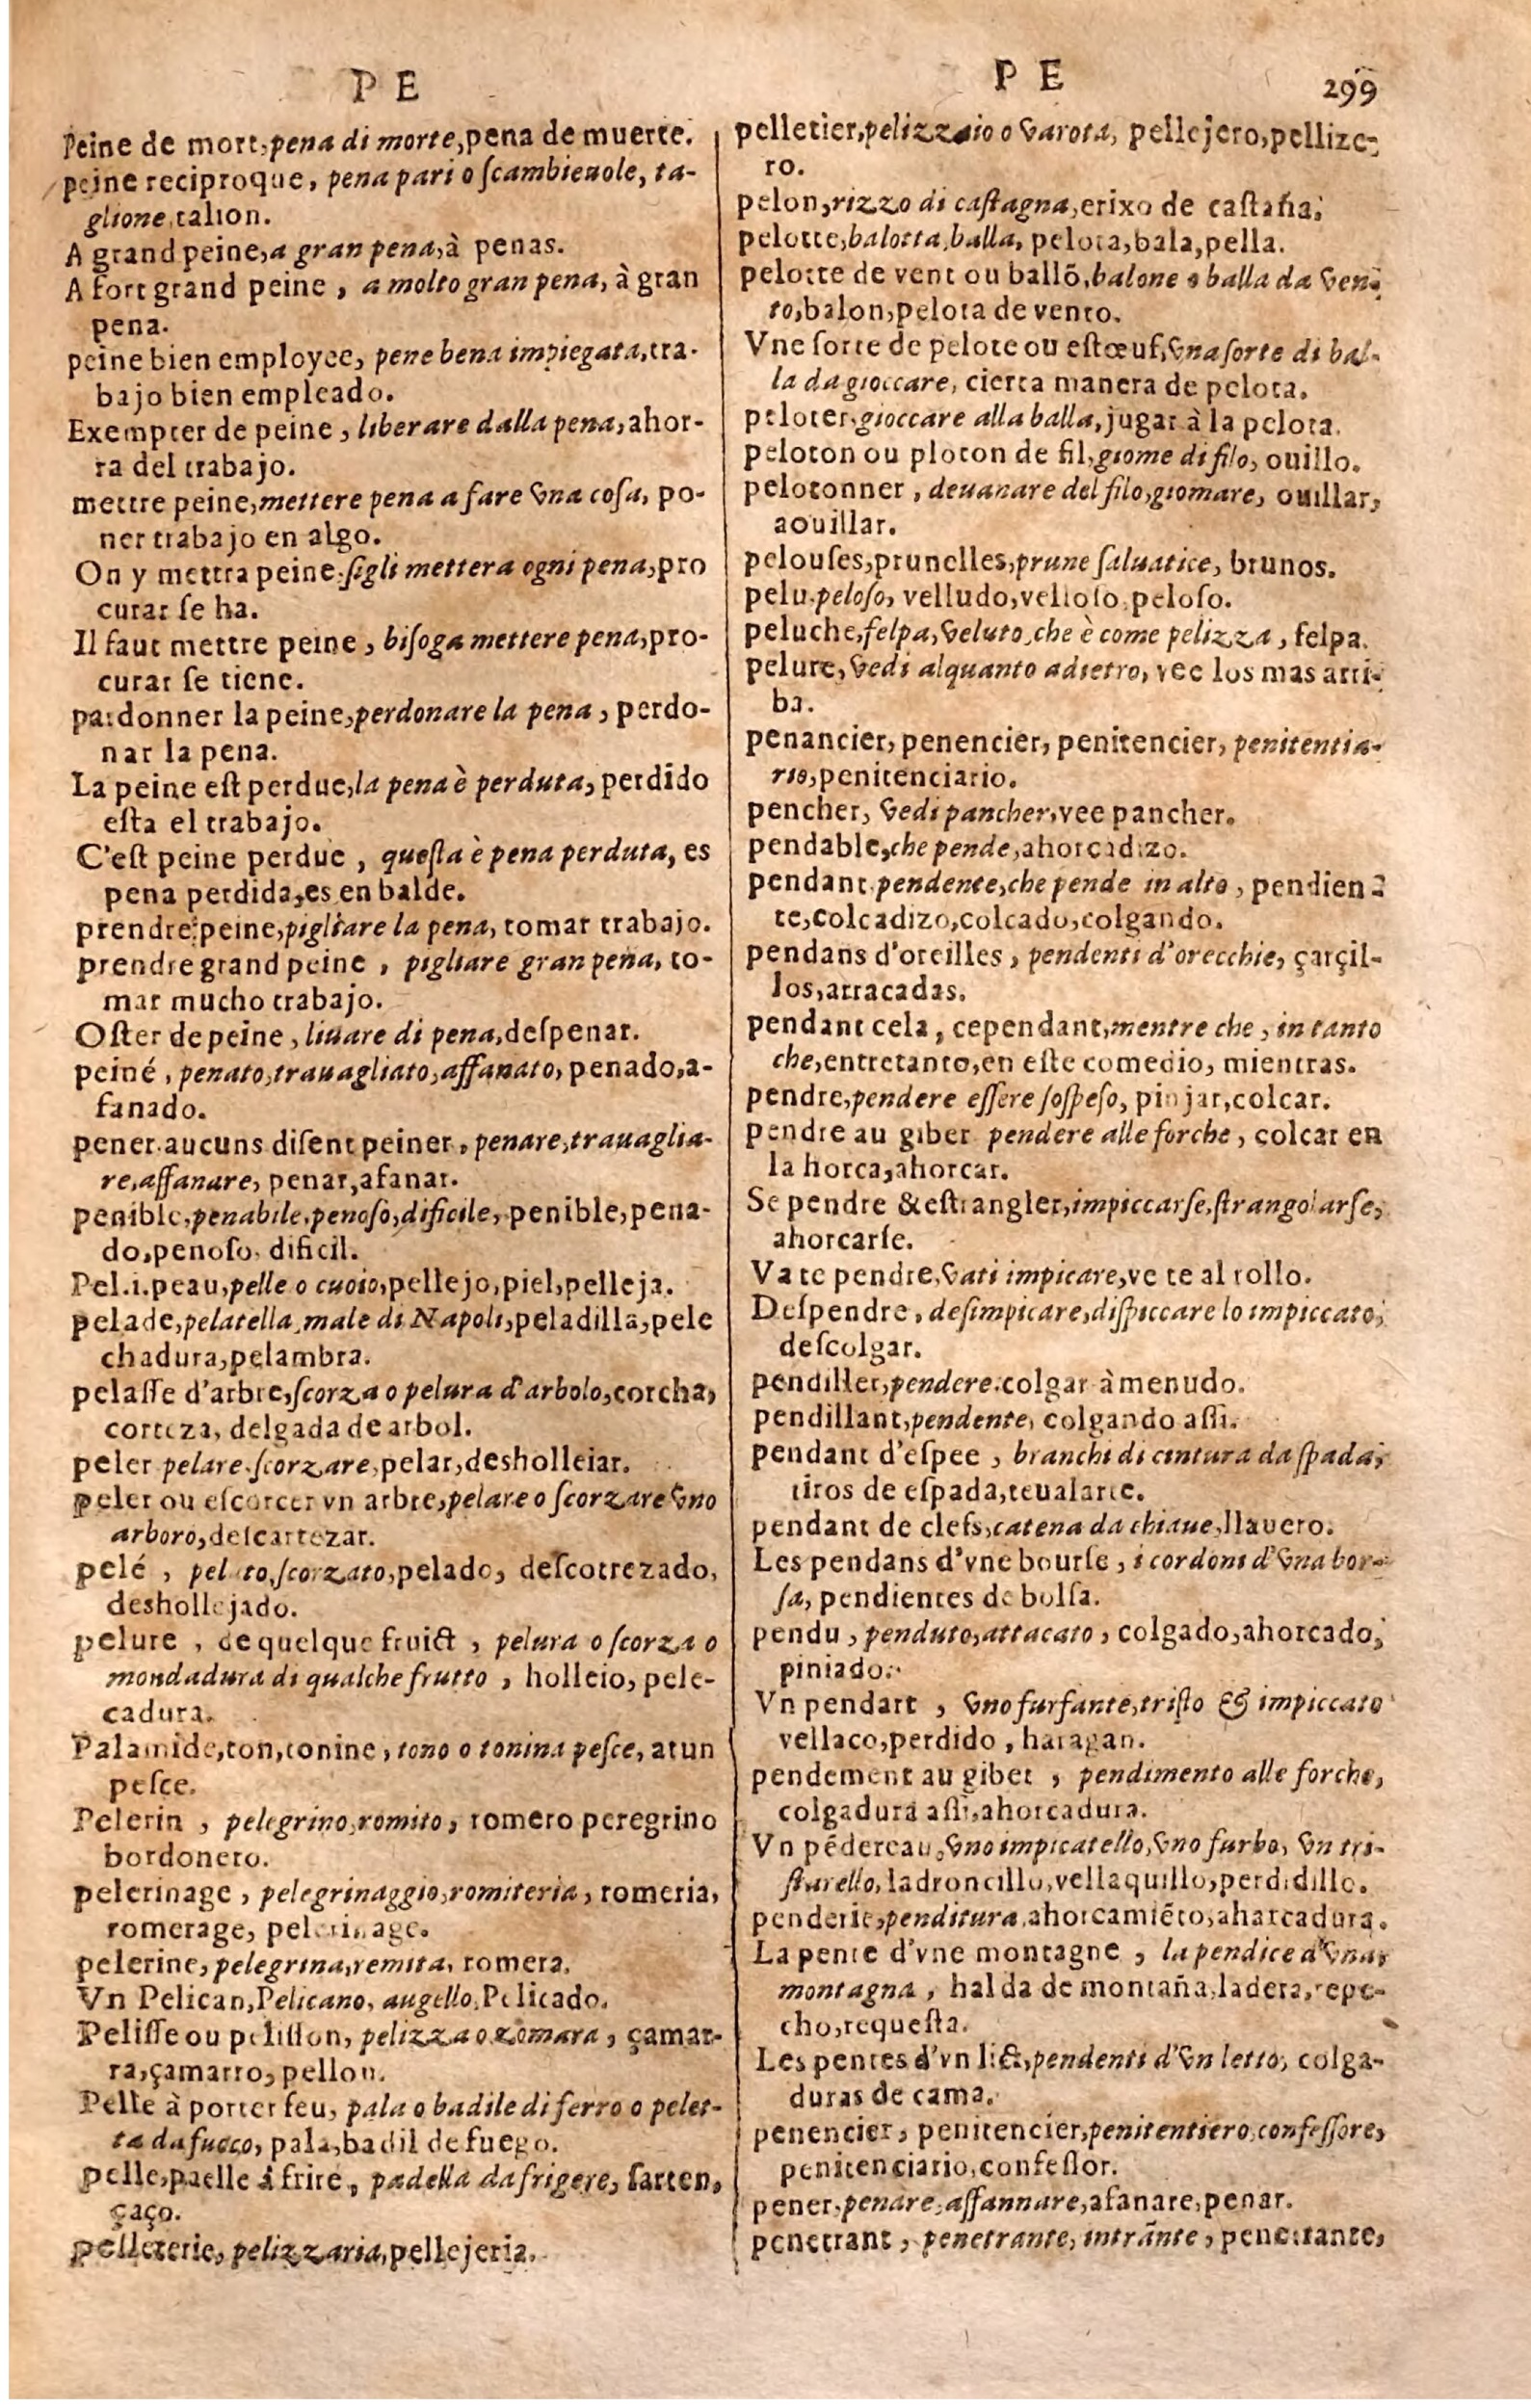 P E
Peine de mort, pena di morte, pena de muerte.
peine reciproque, pena pari o ſcambieuole, ta-
glione, talion.
A grand peine, a gran pena, à penas.
A fort grand peine, a molto gran pena, à gran
pena.
peine bien employee, pene bena impiegata, tra-
bajo bien empleado.
Exempter de peine, liberare dalla pena, ahor-
ra del trabajo.
mettre peine, mettere pena a fare vna coſa, po-
ner trabajo en algo.
On y mettra peine, ſigli mettera ogni pena, pro
curar ſe ha.
Il faut mettre peine, biſoga mettere pena, pro-
curar ſe tiene.
pardonner la peine, perdonare la pena, perdo-
nar la pena.
La peine eſt perdue, la pena è perduta, perdido
eſta el trabajo.
C'eſt peine perdue, queſta è pena perduta, es
pena perdida, es en balde.
prendre peine, pigliare la pena, tomar trabajo.
prendre grand peine, pigliare gran pena, to-
mar mucho trabajo.
Oſter de peine, liuare di pena, deſpenar.
peiné, penato, trauagliato, affanato, penado, a-
fanado.
pener aucuns diſent peiner, penare, trauaglia-
re, affanare, penar, afanar.
penible, penabile, penoſo, dificile, penible, pena-
do, penoſo, dificil.
Pel.i.peau, pelle o cuoio, pellejo, piel, pelleja.
pelade, pelatella, male di Napoli, peladilla, pele
chadura, pelambra.
pelaſſe d'arbre, ſcorza o pelura d'arbolo, corcha,
corteza, delgada de arbol.
peler pelare, ſcorzare, pelar, desholleiar.
peler ou eſcorcer vn arbre, pelare o ſcorzare vno
arboro, deſcartezar.
pelé, pelato, ſcorzato, pelado, deſcotrezado,
deshollejado.
pelure, de quelque fruict, pelura o ſcorza o
mondadura di qualche frutto, holleio, pele-
cadura.
Palamide, ton, tonine, tono o tonina peſce, atun
peſce.
Pelerin, pelegrino, romito, romero peregrino
bordonero.
pelerinage, pelegrinaggio, romiteria, romeria,
romerage, pelerinage.
pelerine, pelegrina, remita, romera.
Vn Pelican, Pelicano, augello, Pelicado.
Peliſſe ou peliſſon, pelizza o zomara, çamar-
ra, çamarro, pellon.
Pelle à porter feu, pala o badile di ferro o pelet-
ta da fuoco, pala, badil de fuego.
pelle, paelle à frire, padella da frigere, ſarten,
çaço.
pelleterie, pelizzaria, pellejeria.
P E
299
pelletier, pelizzaio o varota, pellejero, pellize-
ro.
pelon, rizzo di caſtagna, erixo de caſtaña.
pelotte, balotta, balla, pelota, bala, pella.
pelotte de vent ou ballō, balone o balla da ven-
to, balon, pelota de vento.
Vne ſorte de pelote ou eſtœuf, vna ſorte di bal-
la da gioccare, cierta manera de pelota.
peloter, gioccare alla balla, jugar à la pelota.
peloton ou ploton de fil, giome di filo, ouillo.
pelotonner, deuanare del filo, giomare, ouillar,
aouillar.
pelouſes, prunelles, prune ſaluatice, brunos.
pelu, peloſo, velludo, velloſo, peloſo.
peluche, felpa, veluto, che è come pelizza, felpa.
pelure, vedi alquanto adietro, vee los mas arri-
ba.
penancier, penencier, penitencier, penitentia-
rio, penitenciario.
pencher, vedi pancher, vee pancher.
pendable, che pende, ahorcadizo.
pendant, pendente, che pende in alto, pendien-
te, colcadizo, colcado, colgando.
pendans d'oreilles, pendenti d'orecchie, çarçil-
los, arracadas.
pendant cela, cependant, mentre che, in tanto
che, entretanto, en eſte comedio, mientras.
pendre, pendere eſſere ſoſpeſo, pinjar, colcar.
pendre au gibet pendere alle forche, colcar en
la horca, ahorcar.
Se pendre & eſtrangler, impiccarſe, ſtrangolarſe,
ahorcarſe.
Va te pendre, vati impicare, ve te al rollo.
Deſpendre, deſimpicare, diſpiccare lo impiccato,
deſcolgar.
pendiller, pendere, colgar à menudo.
pendillant, pendente, colgando aſſi.
pendant d'eſpee, branchi di cintura da ſpada,
tiros de eſpada, teualarte.
pendant de clefs, catena da chiaue, llauero.
Les pendans d'vne bourſe, i cordoni d'vna bor-
ſa, pendientes de bolſa.
pendu, penduto, attacato, colgado, ahorcado,
piniado.
Vn pendart, vno furfante, triſto & impiccato
vellaco, perdido, haragan.
pendement au gibet, pendimento alle forche,
colgadura aſſi, ahorcadura.
Vn pēdereau, vno impicatello, vno furbo, vn tri-
ſturello, ladroncillo, vellaquillo, perdidillo.
penderie, penditura, ahorcamiēto, aharcadura.
La pente d'vne montagne, la pendice d'vna
montagna, halda de montaña, ladera, repe-
cho, requeſta.
Les pentes d'vn lict, pendenti d'vn letto, colga-
duras de cama.
penencier, penitencier, penitentiero, confeſſore,
penitenciario, confeſſor.
pener, penare, affannare, afanare, penar.
penetrant, penetrante, intrānte, penetrante,